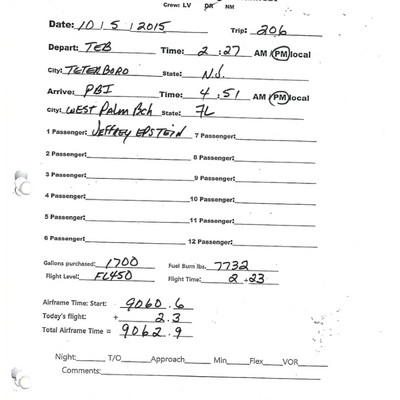 Crew: LV DR NM
Date: 10 | 5 | 2015 Trip: 206
Depart: TEB Time: 2 : 27 AM / PM local
City: TETERBORO State: N.J.
Arrive: PBI Time: 4 : 51 AM / PM local
City: WEST Palm Bch State: FL
1 Passenger: JEFFREY EPSTEIN 7 Passenger:
2 Passenger: 8 Passenger:
3 Passenger: 9 Passenger:
4 Passenger: 10 Passenger:
5 Passenger: 11 Passenger:
6 Passenger: 12 Passenger:
Gallons purchased: 1700 Fuel Burn lbs. 7732
Flight Level: FL450 Flight Time: 2 . 23
Airframe Time: Start: 9060 . 6
Today's flight: + 2 . 3
Total Airframe Time = 9062 . 9
Night: T/O Approach Min Flex VOR
Comments: